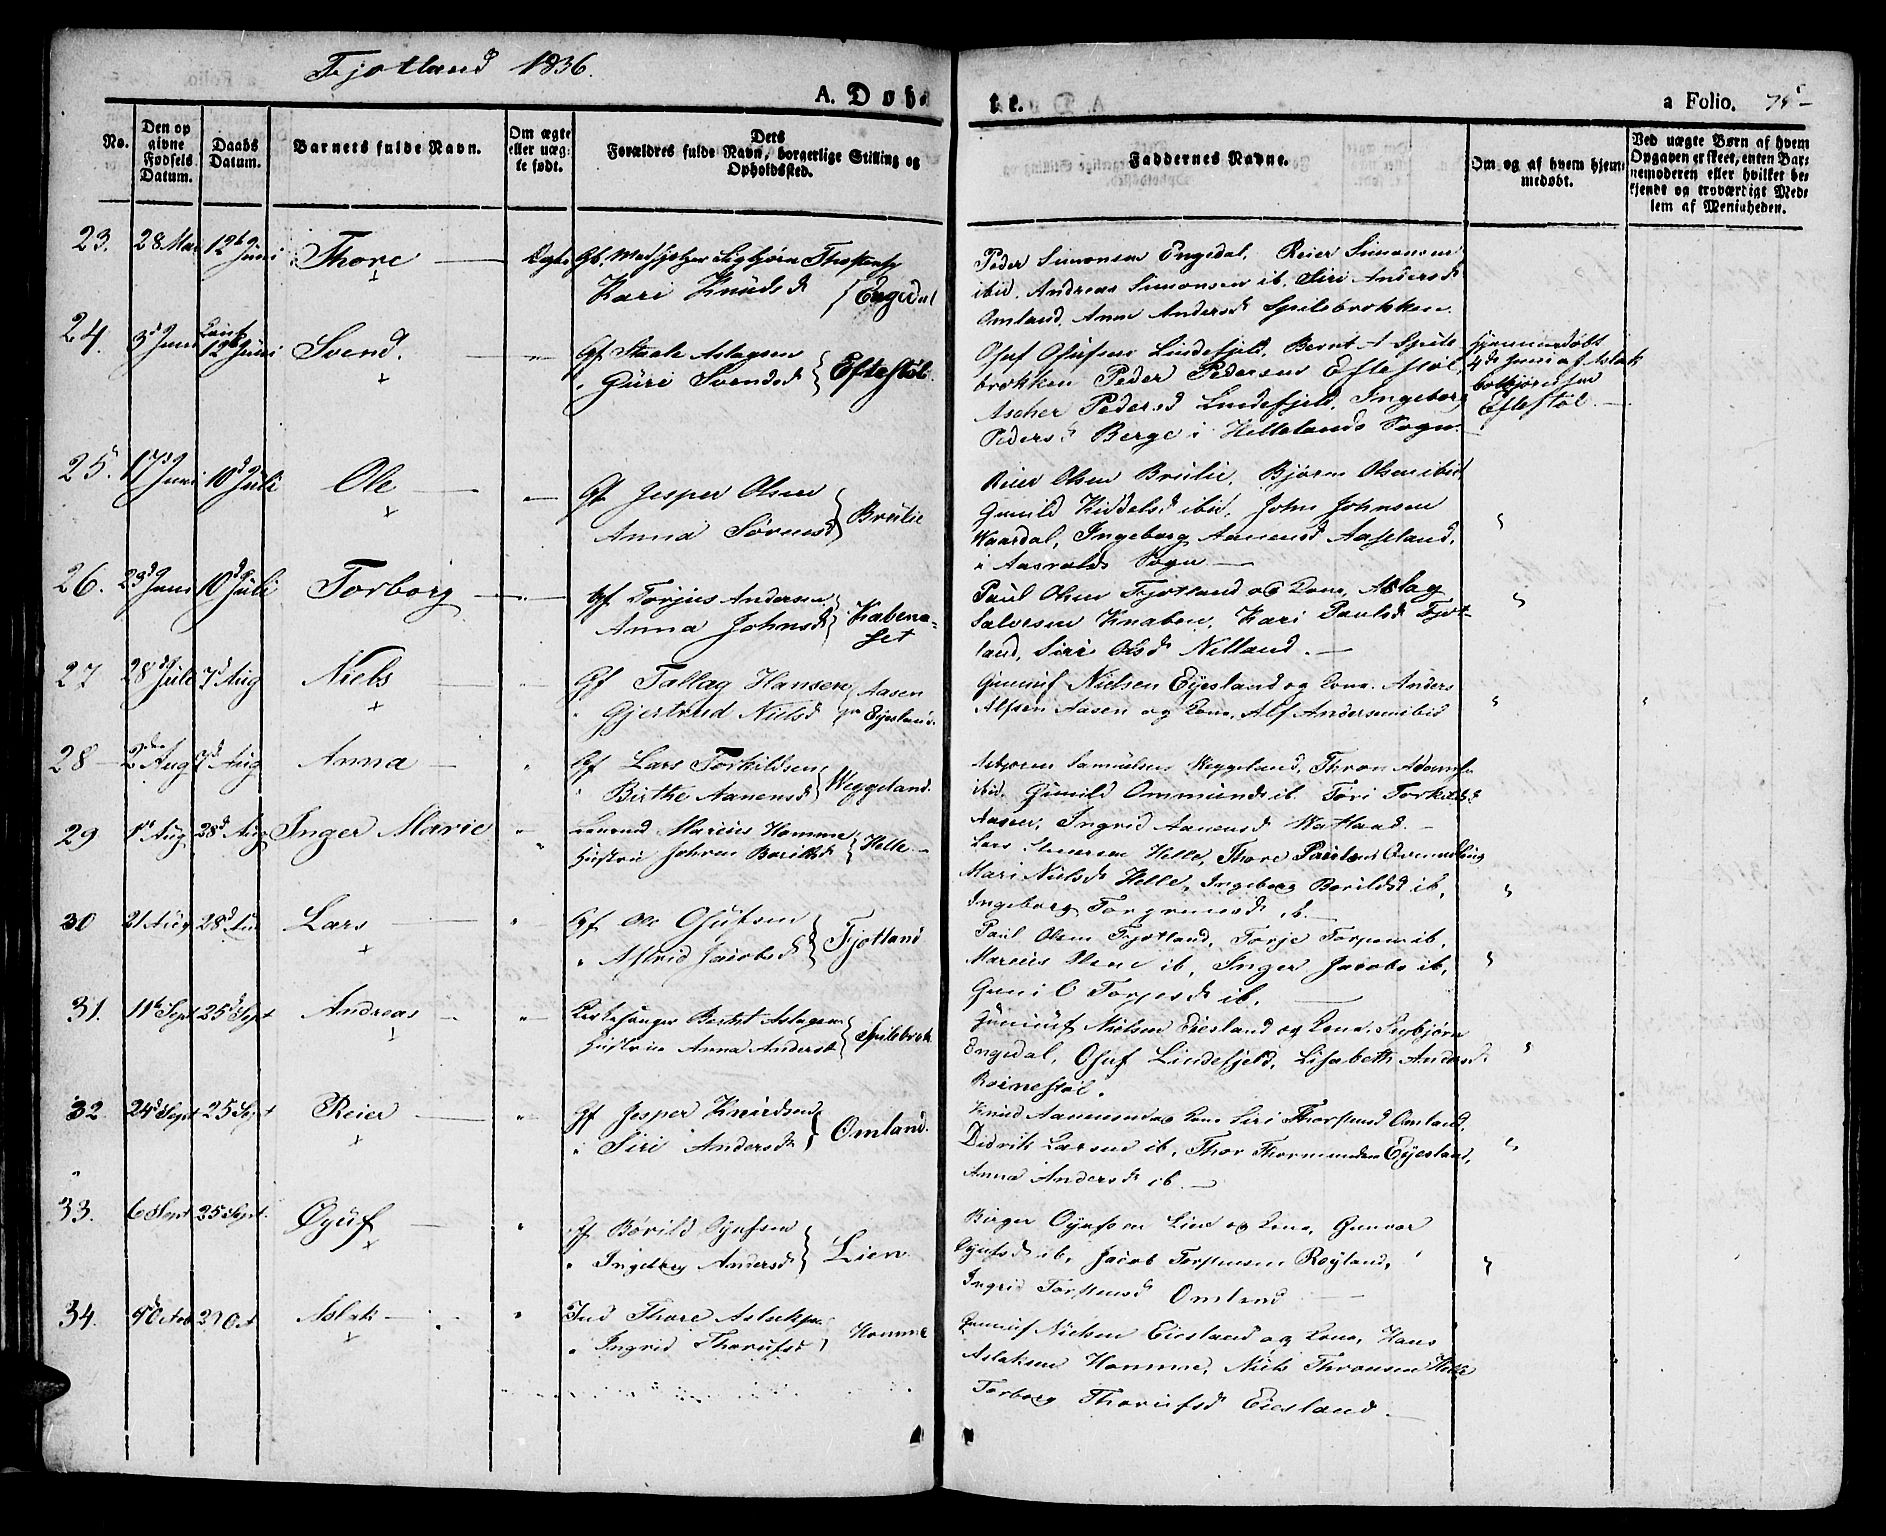 Fjotland 1836.
A. Døb
te.
a Folio. 75
No.
Den op
givne
Fødsels
Datum.
Daabs
Datum.
Barnets fulde Navn.
Om ægte
eller uæg
te født.
Dets
Forældres fulde Navn, borgerlige Stilling og
Opholdssted.
Faddernes Navne.
Om og af hvem hjem
medøbt.
Ved uægte Børn af hvem
Opgaven er skeet, enten Bar
nemoderen eller hvilket be
kjendt og troværdigt Med
lem af Menigheden.
23. 28 Mai 12 Juni Thore Ægte Sigbjørn
Kari Knuds Engedal
Peder Simonsen Engedal, Reier Simonsen
ibid. Andreas Simonsen ib. Siri Andersd
Omland, Anna Andersd Spilebrokken.
24. 3 Juni 12 Juni Svend. Gf. Staale Aslagsen
Guri Svendsd Eftestøl
Osuf Osufsen Lindefjeld, Bernt A Spile
brokken Peder Pedersen Eftestøl,
Ascher Pedersd Lindefjeld, Ingeborg
Pedersd Berge i Hellelands Sogn.
Hjemmedøbt
4de Juni af Aslak
Eftestøl
25. 17 Juni 10 Juli Ole Gf Jesper Olsen
Anna Sørensd Brulie
Reier Olsen Brulie, Bjørn Olsen ibid
Gunild Kiddelsd ibid, John Johnsen
Waardal, Ingeborg Aanensd Aaseland,
i Aaserals Sogn
26. 23d Juni 10d Juli Torborg Gf. Torjus Andersen
Anna Johnsd Knabena-
set
Paul Olsen Fjotland og Kone, Aslag
Salvesen Knaben, Kari Paulsd Fjot-
land, Siri Olsd Netland.
27 28 Juli 7d Aug Niels Gf Tallag Hansen
Gjertrud Nielsd Aasen
Eyesland.
Gunuf Nielsen Eyesland og Kone. Anders
Alfsen Aasen og Kone, Alf Andersen ibid
28 2 Aug 7d Aug Anna Gf Lars Torkildsen
Birthe Aanensd Weggeland.
Asbjørn Samuelsen Weggeland, Thron Adamsen
ibid. Gunild Ommundsd ib. Tori Torkildsd
Aasen, Ingrid Aanensd Watland.
29 1 Aug 28d Aug Inger Marie Marcus Homme
Hustru Helle
Lars Helle, Thore
Mari Nielsd Helle, Ingeborg Borildsd ib,
Ingeborg ib.
30 21 Aug 28d Lars Gf Ole Osufsen
Astrid Jacobsd Fjotland
Paul Olsen Fjotland, Torje ib,
Marcus ib, Inger Jacobs ib,
ib.
31. 11 Sept 25d Sept Andreas Kirkesanger Berent Aslagsen
Hustrue Anna Andersd Spilebrok
Gunuf Nielsen Eiesland og Kone. Sigbjørn
Engedal, Osuf Lindefjeld, Lisabeth Andersd
Roinestøl.
32. 24d Sept 25 Sept Reier Gf Jesper Knudsen
Siri Andersd Omland.
Knud Aanensen og Kone Siri Thorstensd Omland,
Didrik Larsen ib, Thor Thormundsen Eyesland,
Anna Andersd ib.
33. 6 Sept 25 Sept. Øyuf Gf Børild Oyufsen
Ingeborg Andersd Lien
Birger Oyufsen Lien og Kone, Gunvor
Oyufsd ib, Jacob Torstensen Røyland,
Ingrid Torstensd Omland
34. Aslak Ind Thore Aslaksen
Ingrid Thorufsd Homme
Gunuf Nielsen Eiesland og Kone, Hans
Aslaksen Homme, Niels Thronsen Helle
Torborg Thorufsd Eiesland.